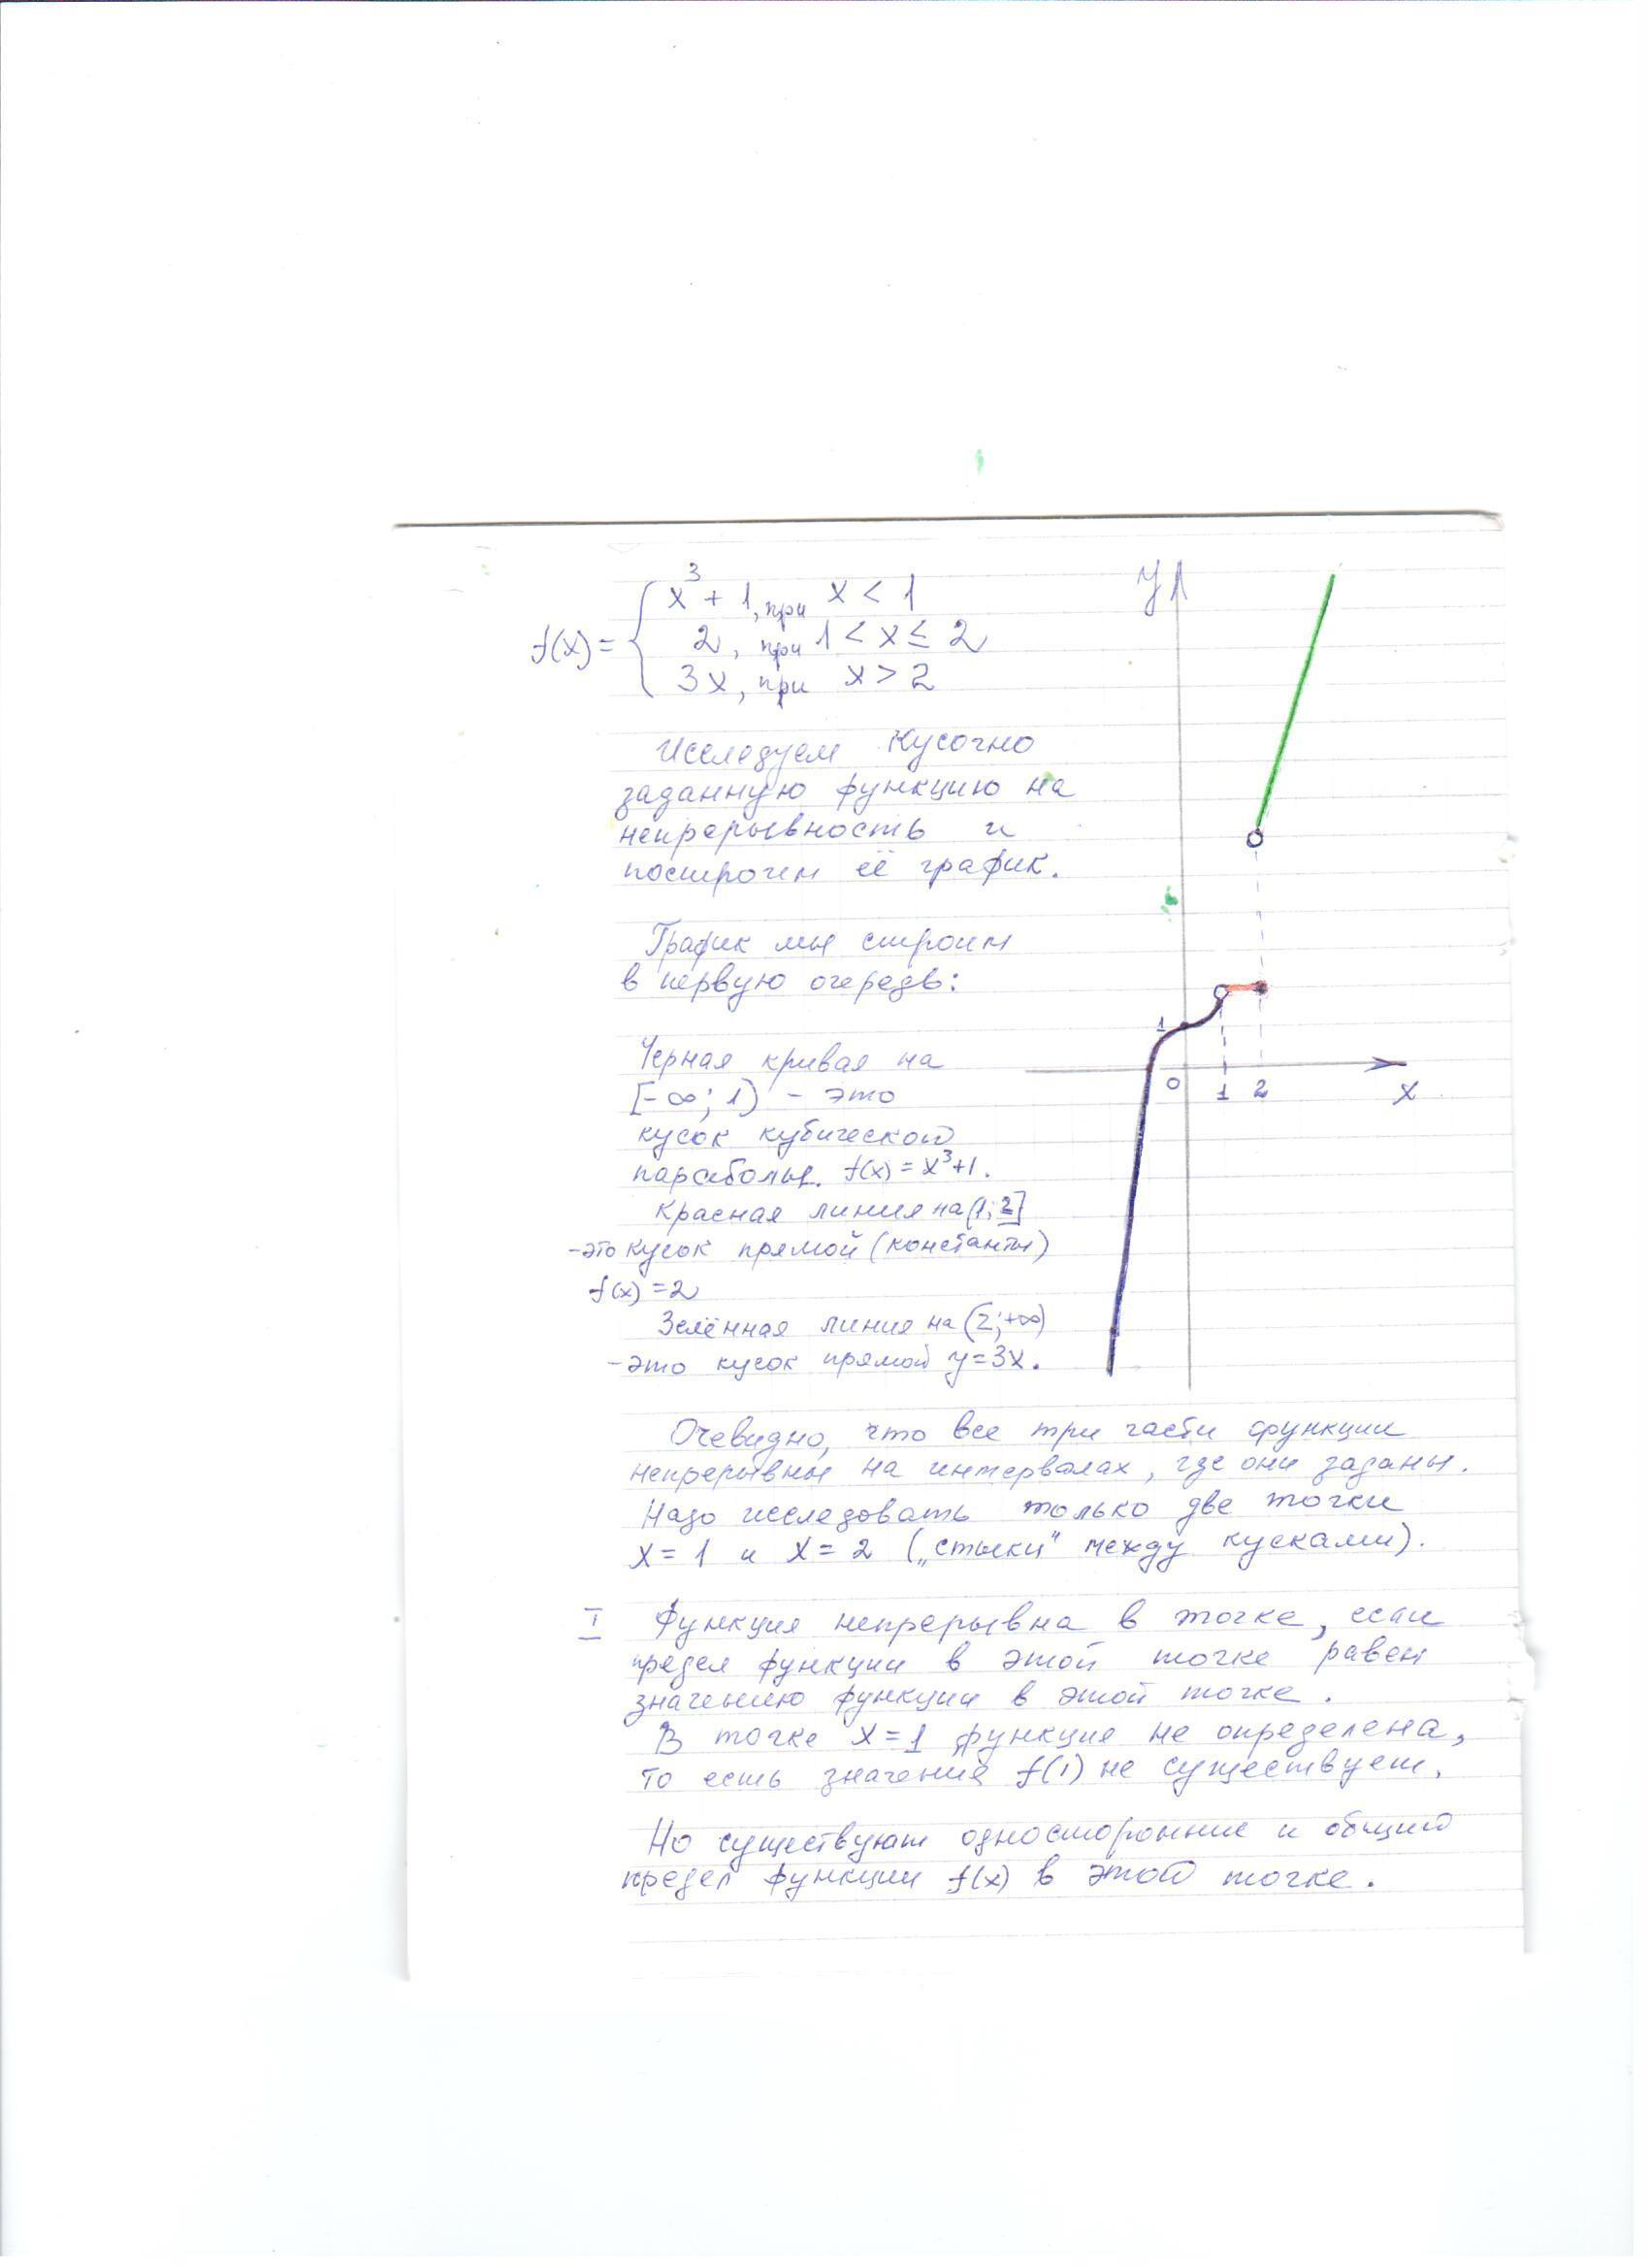 f(x) = { x³ + 1, при x < 1
2, при 1 < x ≤ 2
3x, при x > 2
Исследуем кусочно
заданную функцию на
непрерывность и
построим её график.
График мы строим
в первую очередь:
Черная кривая на
[-∞; 1) - это
кусок кубической
параболы f(x) = x³+1.
Красная линия на (1; 2]
-это кусок прямой (константы)
f(x) = 2
Зелённая линия на (2; +∞)
-это кусок прямой y=3x.
y
1
0
1 2
x
Очевидно, что все три части функции
непрерывны на интервалах, где они заданы.
Надо исследовать только две точки
x = 1 и x = 2 („стыки" между кусками).
I Функция непрерывна в точке, если
предел функции в этой точке равен
значению функции в этой точке.
В точке x = 1 функция не определена,
то есть значения f(1) не существует.
Но существуют односторонние и общий
предел функции f(x) в этой точке.